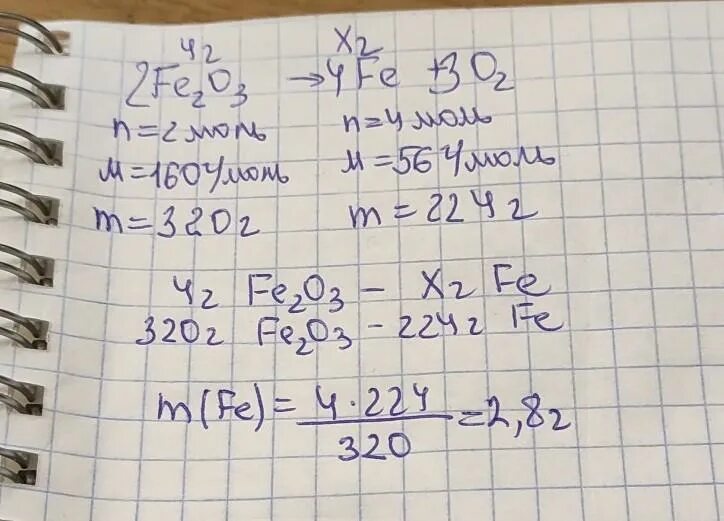 4г Xг
2Fe₂O₃ → 4Fe + 3O₂
n=2моль n=4моль
M=160г/моль M=56г/моль
m=320г m=224г
4г Fe₂O₃ – Xг Fe
320г Fe₂O₃ – 224г Fe
m(Fe) = 4·224/320 = 2,8г